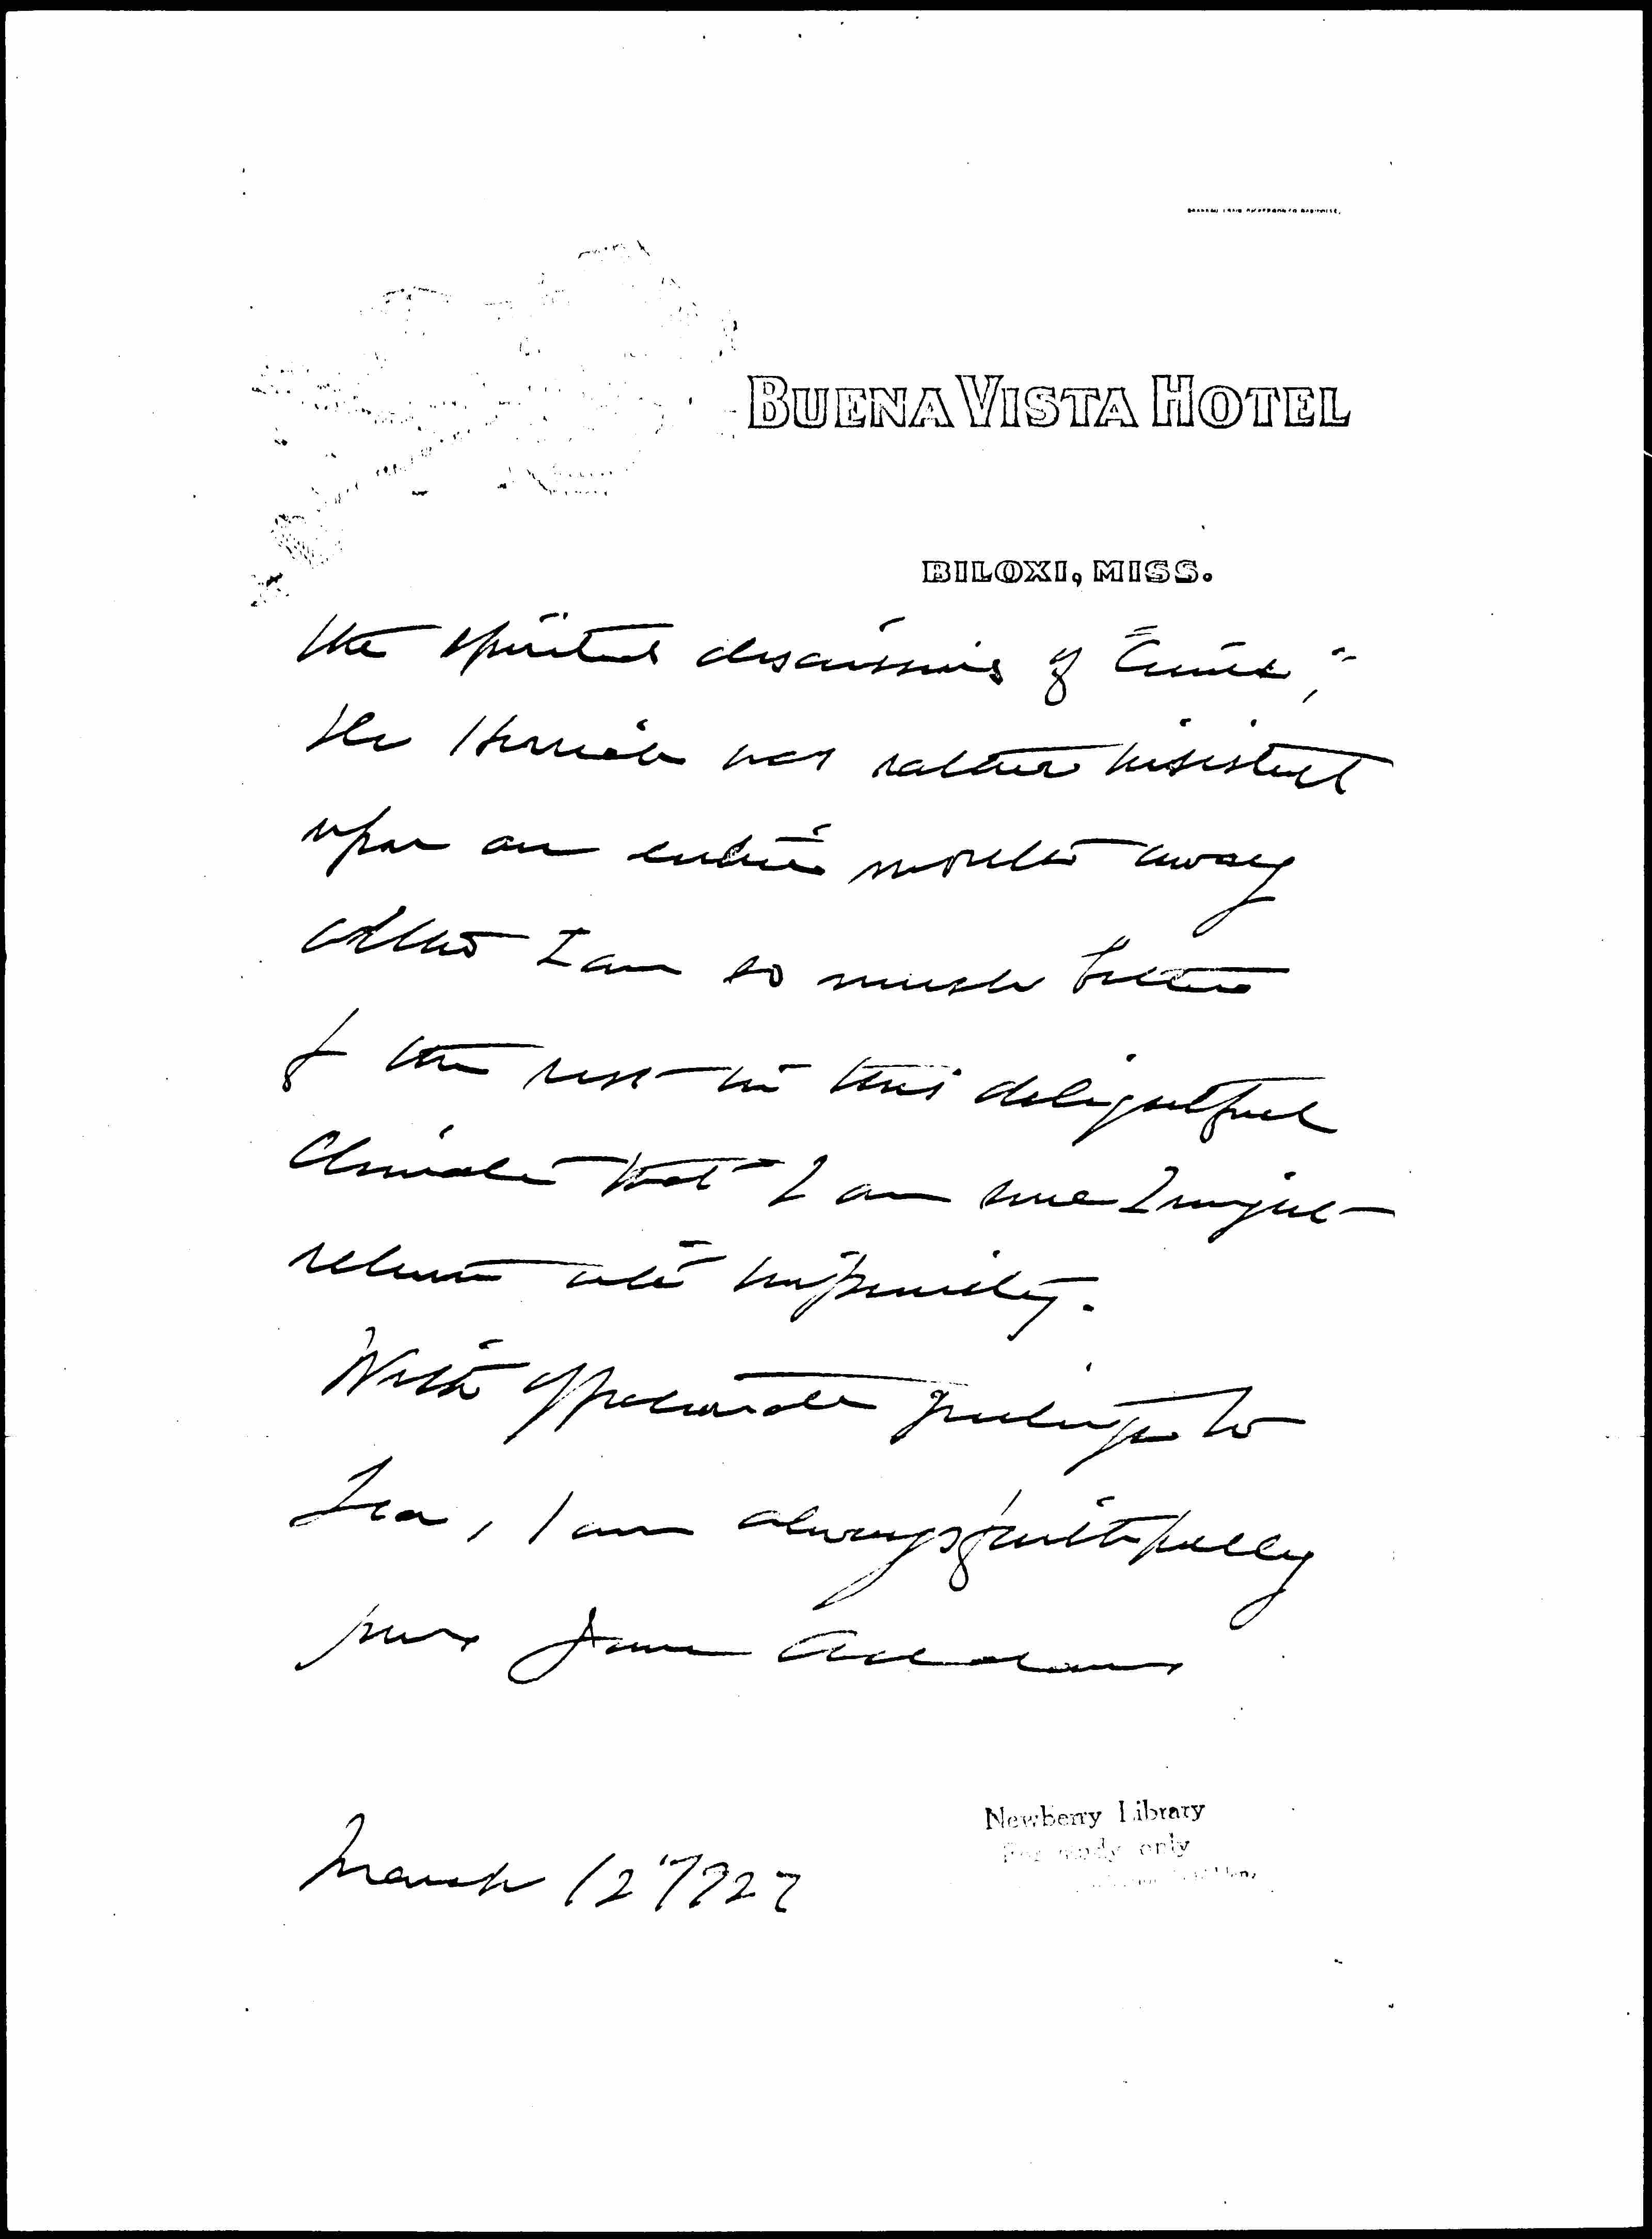 BUENA VISTA HOTEL
BILOXI, MISS.
the spirited discussions of "Crime,"
Dr Herrick was rather insistent
upon an entire month away
altho I am so much better
for the rest in this delightful
climate that I am sure I might
return with impunity.
With affectionate greetings to
Lea, I am always faithfully
yours Jane Addams
March 12" 1927
Newberry Library
For study only